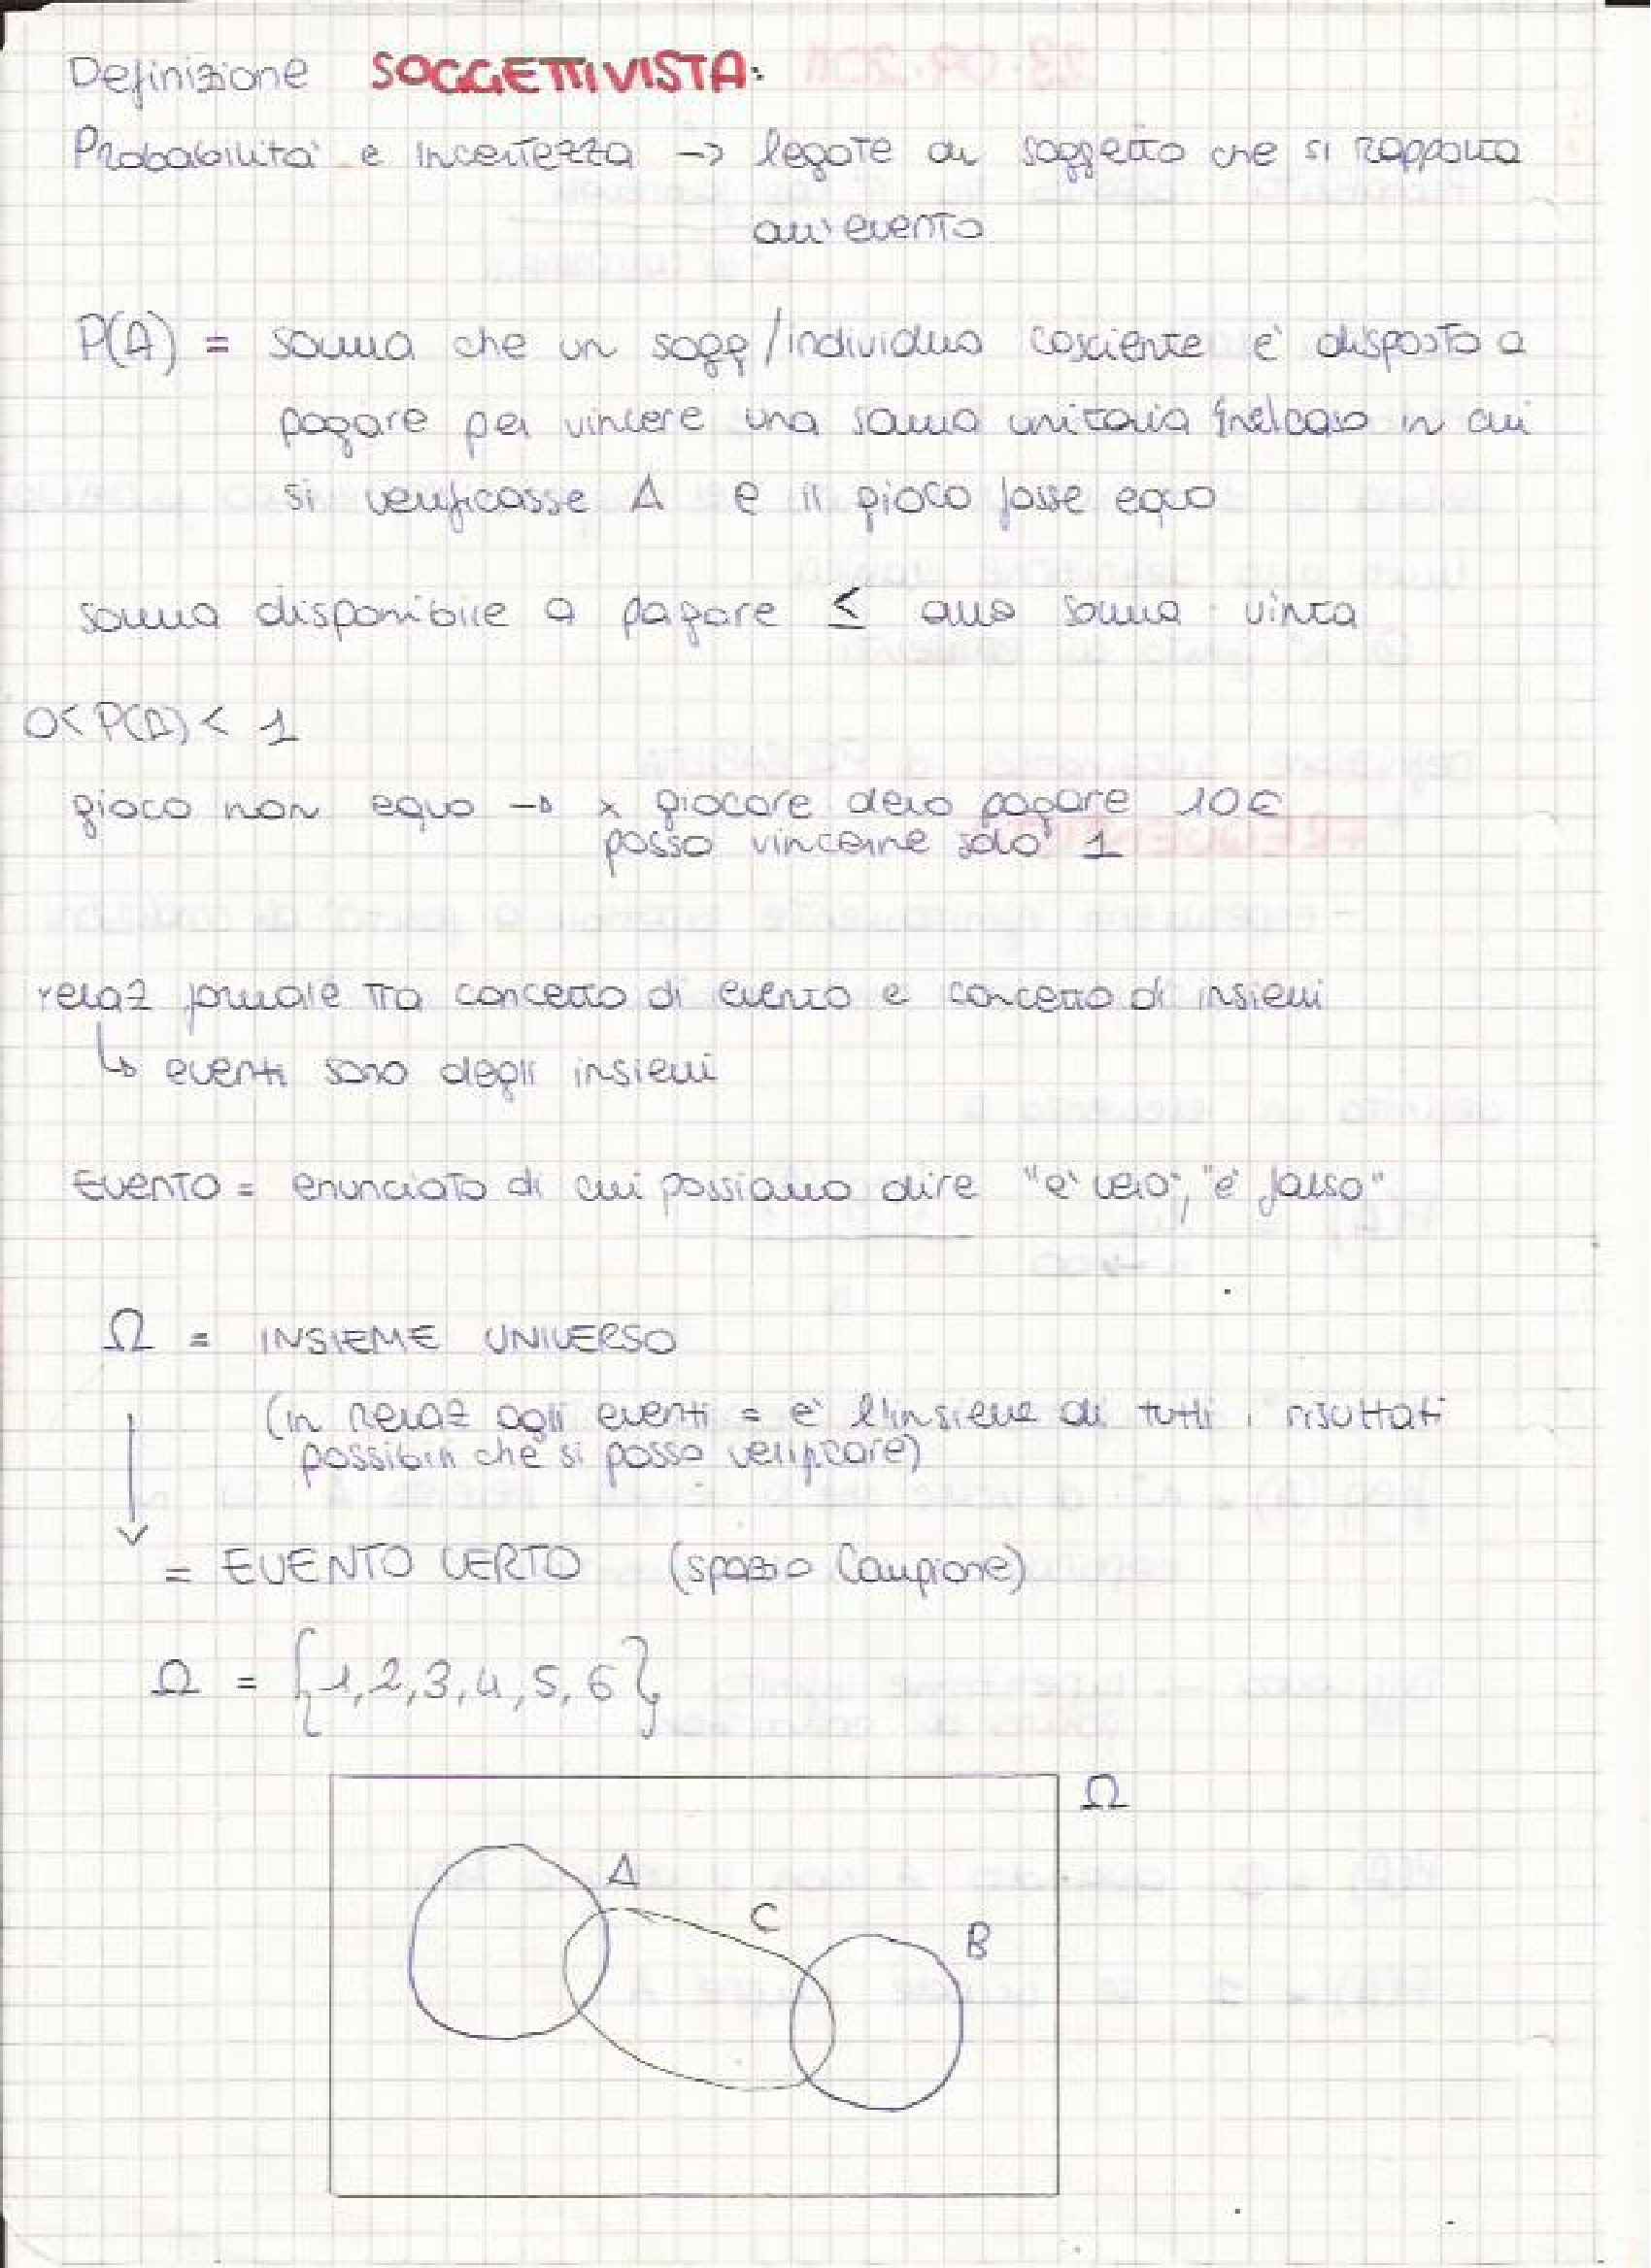 Definizione SOGGETTIVISTA:
Probabilità e incertezza -> legate al soggetto che si rapporta
all'evento
P(A) = somma che un sogg/individuo cosciente è disposto a
pagare per vincere una somma unitaria nel caso in cui
si verificasse A e il gioco fosse equo
somma disponibile a pagare ≤ alla somma vinta
0< P(A) < 1
gioco non equo -> x giocare devo pagare 10€
posso vincerne solo 1
relaz formale tra concetto di evento e concetto di insiemi
↳ eventi sono degli insiemi
EVENTO = enunciato di cui possiamo dire "è vero", "è falso"
Ω = INSIEME UNIVERSO
(in relaz agli eventi = è l'insieme di tutti i risultati
possibili che si possa verificare)
= EVENTO CERTO (spazio Campione)
Ω = {1,2,3,4,5,6}
Ω
A
C
B